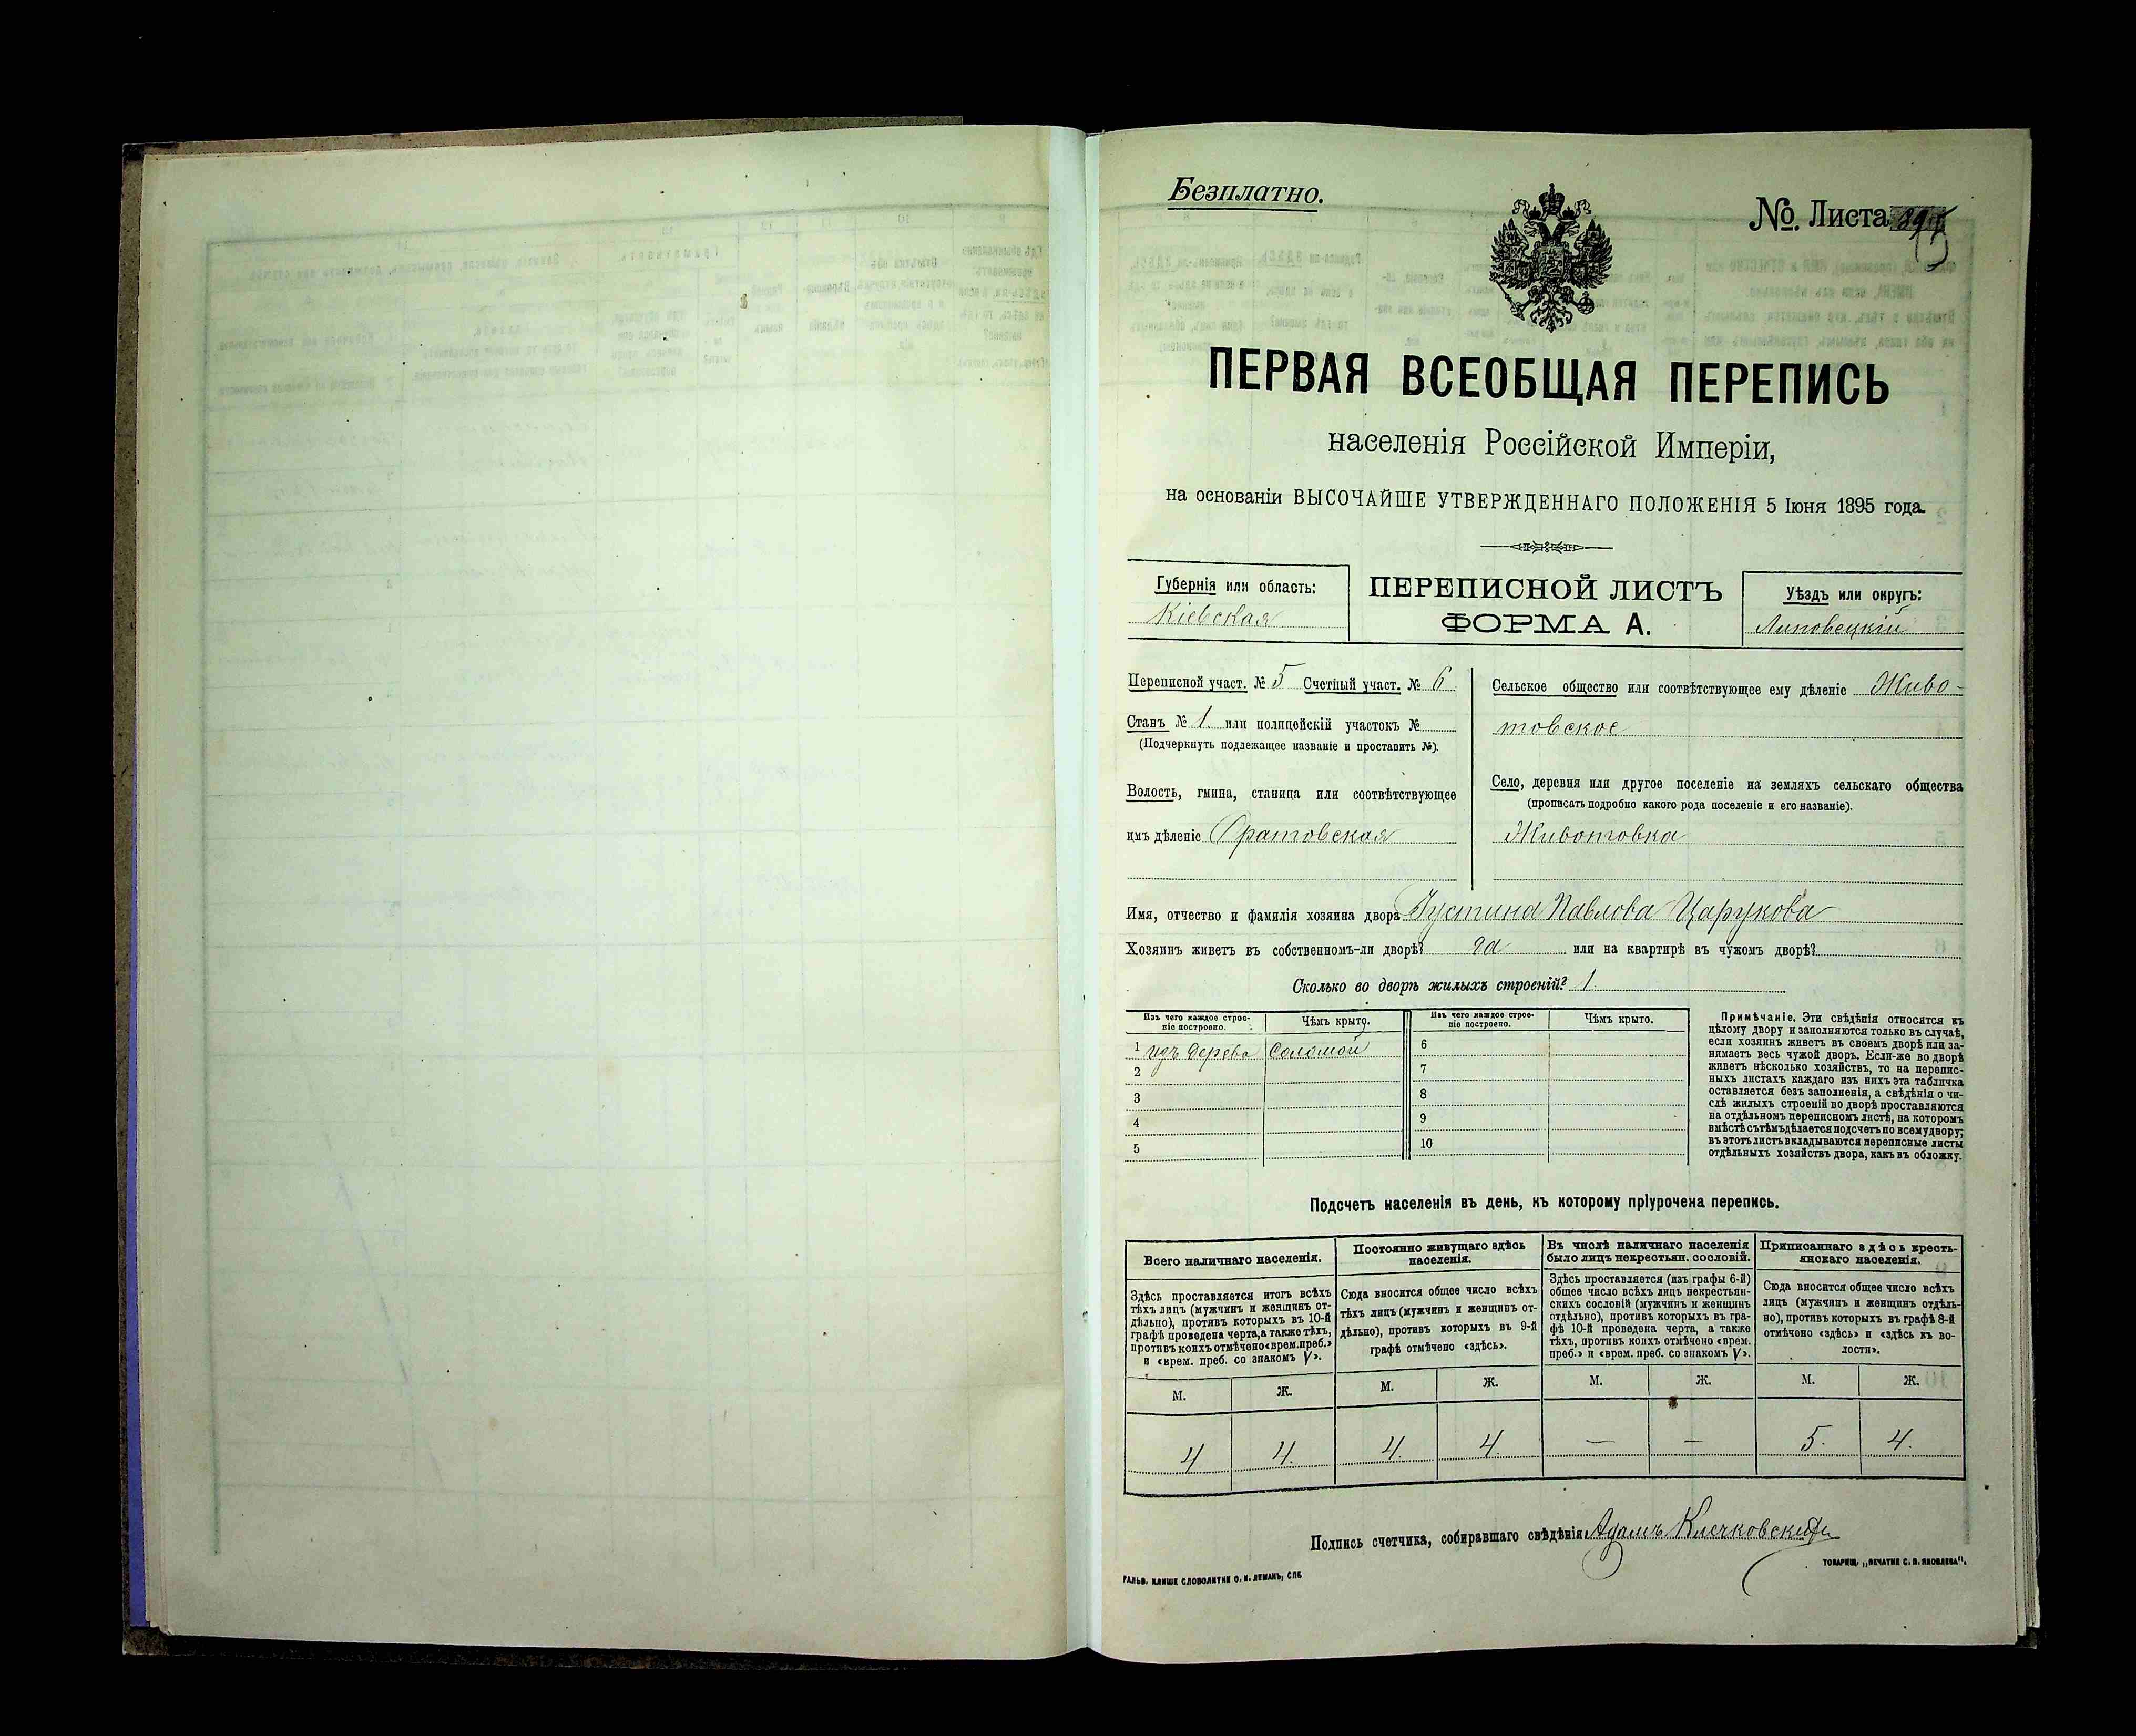 Безплатно.
№. Листа
ПЕРВАЯ ВСЕОБЩАЯ ПЕРЕПИСЬ
населенія Россійской Имперіи,
на основаніи ВЫСОЧАЙШЕ УТВЕРЖДЕННАГО ПОЛОЖЕНІЯ 5 Іюня 1895 года.
Губернія или область:
Кіевская
ПЕРЕПИСНОЙ ЛИСТЪ
ФОРМА А.
Уѣздъ или округъ:
Липовецкій
Переписной участ. № 5 Счетный участ. № 6
Станъ № 1. или полицейскій участокъ №
(Подчеркнуть подлежащее названіе и проставить №).
Волость, гмина, станица или соотвѣтствующее
имъ дѣленіе Оратовская
Сельское общество или соотвѣтствующее ему дѣленіе Живо-
товское
Село, деревня или другое поселеніе на земляхъ сельскаго общества
(прописать подробно какого рода поселеніе и его названіе).
Животовка
Имя, отчество и фамилія хозяина двора Густина Павлова Царукова
Хозяинъ живетъ въ собственномъ-ли дворѣ? да или на квартирѣ въ чужомъ дворѣ?
Сколько во дворѣ жилыхъ строеній? 1.
Изъ чего каждое строе-
ніе построено.
Чѣмъ крыто.
Изъ чего каждое строе-
ніе построено.
Чѣмъ крыто.
1 изъ дерева Соломой 6
2 7
3 8
4 9
5 10
Примѣчаніе. Эти свѣдѣнія относятся къ
цѣлому двору и заполняются только въ случаѣ,
если хозяинъ живетъ въ своемъ дворѣ или за-
нимаетъ весь чужой дворъ. Если-же во дворѣ
живетъ нѣсколько хозяйствъ, то на перепис-
ныхъ листахъ каждаго изъ нихъ эта табличка
оставляется безъ заполненія, а свѣдѣнія о чи-
слѣ жилыхъ строеній во дворѣ проставляются
на отдѣльномъ переписномъ листѣ, на которомъ
вмѣстѣ съ тѣмъ дѣлается подсчетъ по всему двору;
въ этотъ листъ вкладываются переписные листы
отдѣльныхъ хозяйствъ двора, какъ въ обложку.
Подсчетъ населенія въ день, къ которому пріурочена перепись.
Всего наличнаго населенія.
Здѣсь проставляется итогъ всѣхъ
тѣхъ лицъ (мужчинъ и женщинъ от-
дѣльно), противъ которыхъ въ 10-й
графѣ проведена черта, а также тѣхъ,
противъ коихъ отмѣчено «врем. преб.»
и «врем. преб. со знакомъ V».
Постоянно живущаго здѣсь
населенія.
Сюда вносится общее число всѣхъ
тѣхъ лицъ (мужчинъ и женщинъ от-
дѣльно), противъ которыхъ въ 9-й
графѣ отмѣчено «здѣсь».
Въ числѣ наличнаго населенія
было лицъ некрестьян. сословій.
Здѣсь проставляется (изъ графы 6-й)
общее число всѣхъ лицъ некрестьян-
скихъ сословій (мужчинъ и женщинъ
отдѣльно), противъ которыхъ въ гра-
фѣ 10-й проведена черта, а также
тѣхъ, противъ коихъ отмѣчено «врем.
преб.» и «врем. преб. со знакомъ V».
Приписаннаго здѣсь кресть-
янскаго населенія.
Сюда вносится общее число всѣхъ
лицъ (мужчинъ и женщинъ отдѣль-
но), противъ которыхъ въ графѣ 8-й
отмѣчено «здѣсь» и «здѣсь къ во-
лости».
М. Ж. М. Ж. М. Ж. М. Ж.
4 4. 4. 4. — — 5. 4.
Подпись счетчика, собиравшаго свѣдѣнія Адамъ Клечковскій
ГАЛЬВ. КЛИШЕ СЛОВОЛИТНИ О. И. ЛЕМАНЪ, СПБ
ТОВАРИЩ. „ПЕЧАТНЯ С. П. ЯКОВЛЕВА".